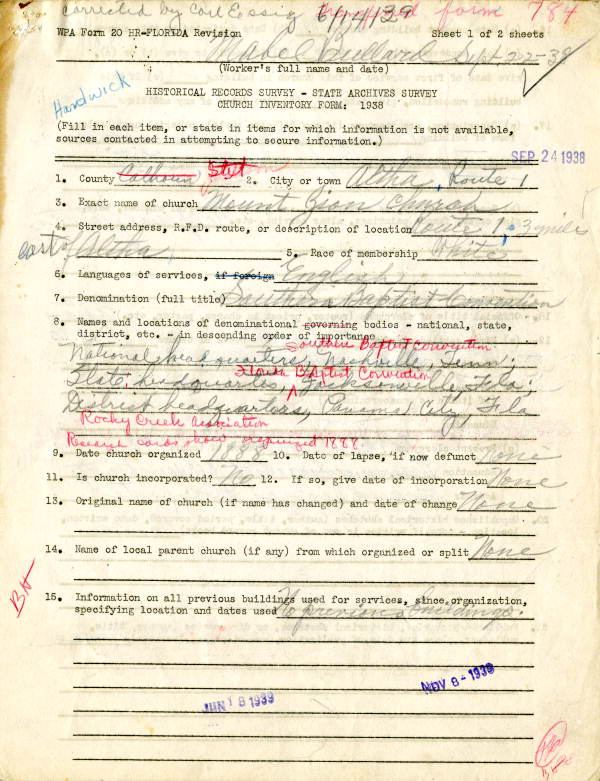 corrected by Carl Essig 6/14/39 form 784
WPA Form 20 HR-FLORIDA Revision Sheet 1 of 2 sheets
Mabel Bullard Sept. 22-38
(Worker's full name and date)
Hardwick
HISTORICAL RECORDS SURVEY - STATE ARCHIVES SURVEY
CHURCH INVENTORY FORM: 1938
(Fill in each item, or state in items for which information is not available,
sources contacted in attempting to secure information.)
SEP 24 1938
1. County Calhoun 2. City or town Altha, Route 1
3. Exact name of church Mount Zion Church
4. Street address, R.F.D. route, or description of location Route 1, 3 miles
east of Altha, 5. Race of membership White
6. Languages of services, if foreign English
7. Denomination (full title) Southern Baptist Convention
8. Names and locations of denominational governing bodies - national, state,
district, etc. - in descending order of importance
Southern Baptist Convention
National headquarters, Nashville, Tenn;
Florida Baptist Convention
State headquarters, Jacksonville, Fla;
District headquarters, Panama City, Fla
Rocky Creek Association
Research cards show organized 1888
9. Date church organized 1888 10. Date of lapse, if now defunct None
11. Is church incorporated? No 12. If so, give date of incorporation None
13. Original name of church (if name has changed) and date of change None
14. Name of local parent church (if any) from which organized or split None
BH
15. Information on all previous buildings used for services, since organization,
specifying location and dates used No previous buildings.
JUN 18 1939 NOV 8 - 1939
BH